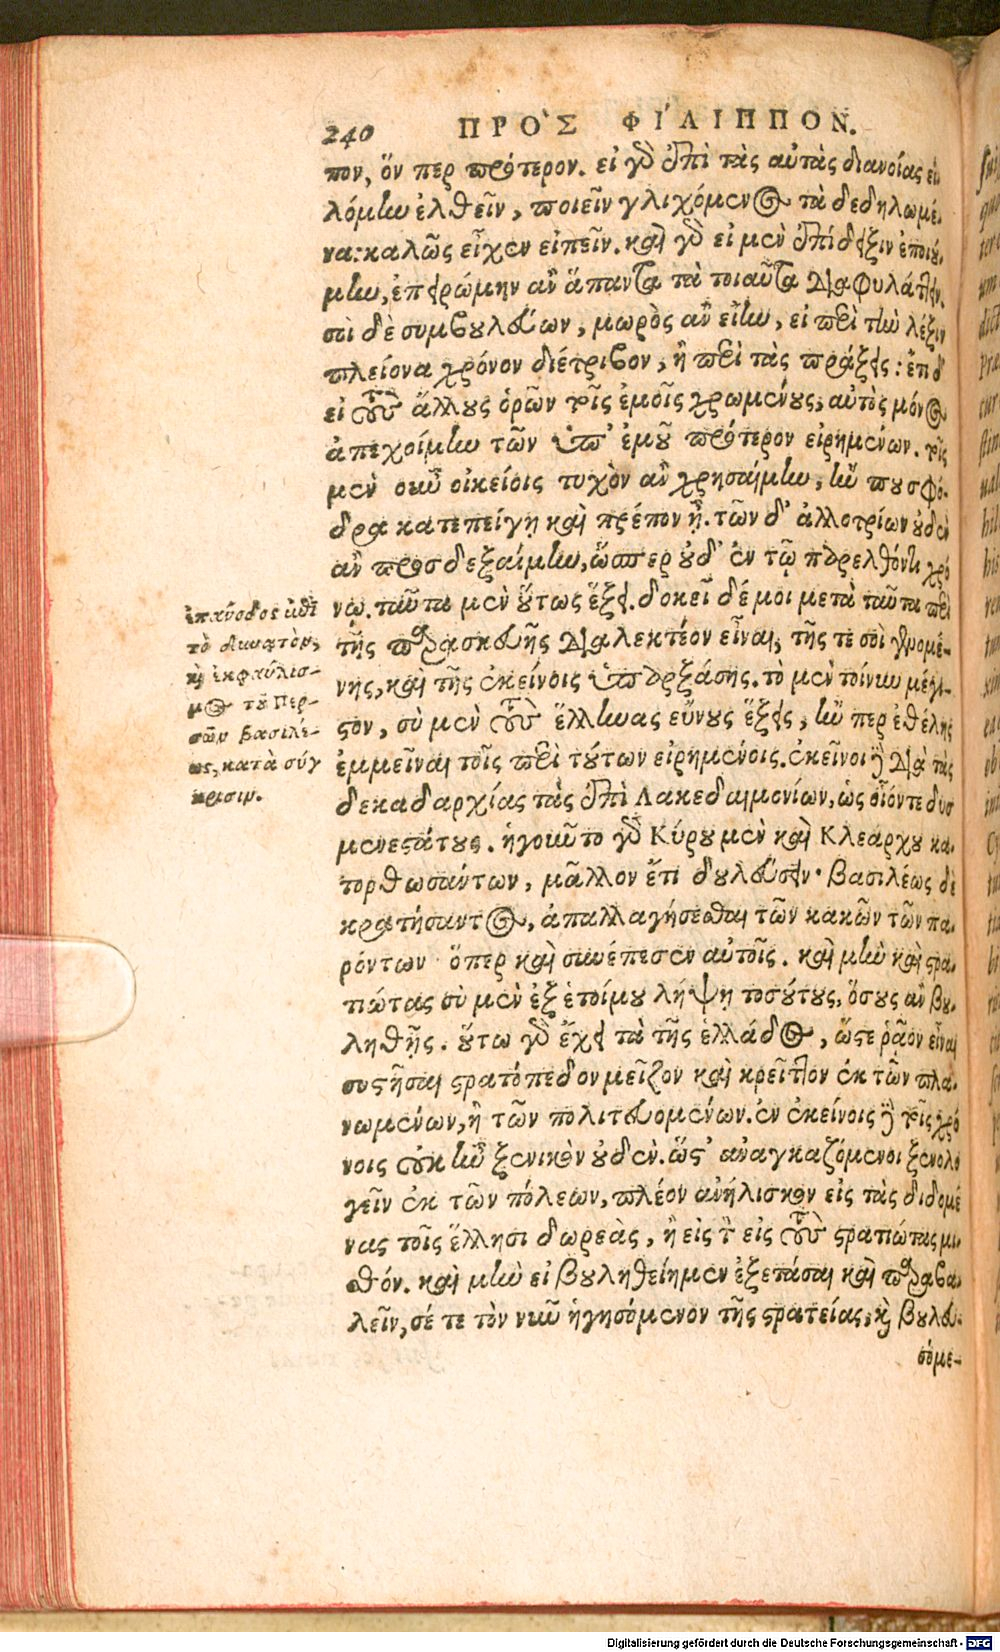 240 ΠΡΟ`Σ ΦΙ´ΛΙΠΠΟΝ.
πον, ὅν περ πρότερον. εἰ γὸ ἐπὶ τὰς αὐτὰς διανοίας εἱ
λόμlυ ἐλθεῖν, ποιεῖν γλιχόμενος τὰ δεδηλωμέ-
να: καλῶς εἶχεν εἰπεῖν. καὶ γὸ εἰ μὲν ἐπίδειξιν ἐποιού-
μην, ἐπειρώμην ἂν ἅπαντα τὰ τοιαῦτα διαφυλάττειν.
σοὶ δὲ συμβουλεύων, μωρὸς ἂν εἴην, εἰ περὶ τὴν λέξιν
πλείονα χρόνον διέτριβον, ἢ περὶ τὰς πράξεις: ἔτι δ'
εἰ τοὺς ἄλλους ὁρῶν τοῖς ἐμοῖς χρωμένους, αὐτὸς μόνος
ἀπεχοίμην τῶν ὑπ' ἐμοῦ πρότερον εἰρημένων. τοῖς
μὲν οὖν οἰκείοις τυχὸν ἂν χρησαίμην, ἤν που σφό-
δρα κατεπείγῃ καὶ πρέπον ᾖ. τῶν δ' ἀλλοτρίων οὐδὲν
ἂν προσδεξαίμην, ὥσπερ οὐδ' ἐν τῷ παρελθόντι χρό
νῳ. ταῦτα μὲν οὕτως ἕξει. δοκεῖ δέ μοι μετὰ ταῦτα περὶ
τῆς παρασκευῆς διαλεκτέον εἶναι, τῆς τε σοὶ γενομέ-
νης, καὶ τῆς ἐκείνοις ὑπαρξάσης. τὸ μὲν τοίνυν μέγι-
στον, σὺ μὲν τοὺς ἕλληνας εὔνους ἕξεις, ἤν περ ἐθέλῃς
ἐμμεῖναι τοῖς περὶ τούτων εἰρημένοις. ἐκεῖνοι δὲ διὰ τὰς
δεκαδαρχίας τὰς ἐπὶ Λακεδαιμονίων, ὡς οἷόντε δυσ
μενεστάτους. ἡγοῦντο γὸ Κύρου μὲν καὶ Κλεάρχου κα-
τορθωσάντων, μᾶλλον ἔτι δουλεύσειν· βασιλέως δὲ
κρατήσαντος, ἀπαλλαγήσεσθαι τῶν κακῶν τῶν πα-
ρόντων· ὅπερ καὶ συνέπεσεν αὐτοῖς. καὶ μὴν καὶ στρα-
τιώτας σὺ μὲν ἐξ ἑτοίμου λήψῃ τοσούτους, ὅσους ἂν βου-
ληθῇς. οὕτω γὸ ἔχει τὰ τῆς ἑλλάδος, ὥστε ῥᾷον εἶναι
συστῆσαι στρατόπεδον μεῖζον καὶ κρεῖττον ἐκ τῶν πλα-
νωμένων, ἢ τῶν πολιτευομένων. ἐν ἐκείνοις δὲ τοῖς χρό
νοις οὐκ ἦν ξενικὸν οὐδέν. ὥστ' ἀναγκαζόμενοι ξενολο
γεῖν ἐκ τῶν πόλεων, πλέον ἀνήλισκον εἰς τὰς διδομέ
νας τοῖς ἕλλησι δωρεὰς, ἢ εἰς τ εἰς τοὺς στρατιώτας μι-
σθόν. καὶ μὴν εἰ βουληθείημεν ἐξετάσαι καὶ παραβα-
λεῖν, σέ τε τὸν νῦν ἡγησόμενον τῆς στρατείας, καὶ βουλευ-
σόμε-
ἐπάνοδος ἐπὶ
τὸ δυνατὸν,
καὶ ἐκφαύλισ-
μος τοῦ Περ-
σῶν βασιλέ-
ως, κατὰ σύγ
κρισιν.
Digitalisierung gefördert durch die Deutsche Forschungsgemeinschaft - DFG